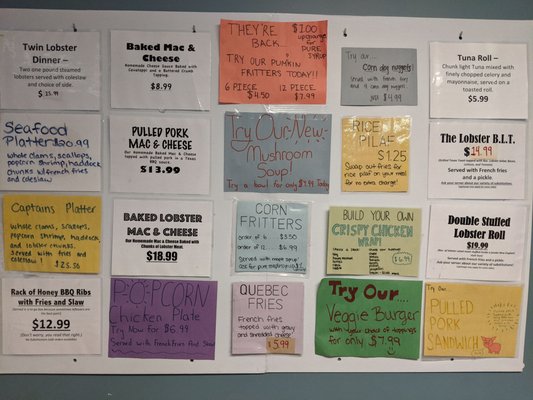 Twin Lobster
Dinner –
Two one pound steamed
lobsters served with coleslaw
and choice of side.
Baked Mac &
Cheese
Homemade Cheese Sauce Baked with
Cavatappi and a Buttered Crumb
Topping
$8.99
THEY'RE
BACK
$1.00
upcharge
for
PURE
SYRUP
TRY OUR PUMKIN
FRITTERS TODAY!!
6 PIECE 12 PIECE
$4.50 $7.99
Try our...
corn dog nuggets!
Served with french fries
$4.99
Tuna Roll –
Chunk light Tuna mixed with
finely chopped celery and
mayonnaise, served on a
toasted roll.
$5.99
Seafood
Platter $20.99
whole clams, scallops,
popcorn shrimp, haddock
chunks w/french fries
and coleslaw
PULLED PORK
MAC & CHEESE
Our Homemade Mac & Cheese Baked
topped with pulled pork in a Texas
BBQ sauce.
$13.99
Try Our New
Mushroom
Soup!
Try a bowl for only $1.99 Today
RICE
PILAF
$1.25
Swap out fries for
rice pilaf on your meal
for no extra charge!
The Lobster B.L.T.
$19.99
Served with French fries
and a pickle.
Ask your server about our variety of substitutions!
Captains Platter
whole clams, scallops,
popcorn shrimp, haddock
and lobster chunks.
Served with fries and
coleslaw $25.50
BAKED LOBSTER
MAC & CHEESE
Our Homemade Mac & Cheese Baked with
Chunks of Lobster Meat.
$18.99
CORN
FRITTERS
order of 6 $3.50
order of 12 $6.99
Served with maple syrup
ask for pure maple syrup $1
BUILD YOUR OWN
CRISPY CHICKEN
WRAP!
$6.99
Double Stuffed
Lobster Roll
$19.99
Served with French fries
and a pickle.
Ask your server about our variety of substitutions!
Rack of Honey BBQ Ribs
with Fries and Slaw
$12.99
(Don't worry, you read that right.)
P·O·P·CORN
Chicken Plate
Try Now for $6.99
Served with French Fries And Slaw
QUEBEC
FRIES
French fries
topped with gravy
and shredded cheese
$5.99
Try Our...
Veggie Burger
with your choice of toppings
for only $7.99
Try Our...
PULLED
PORK
SANDWICH